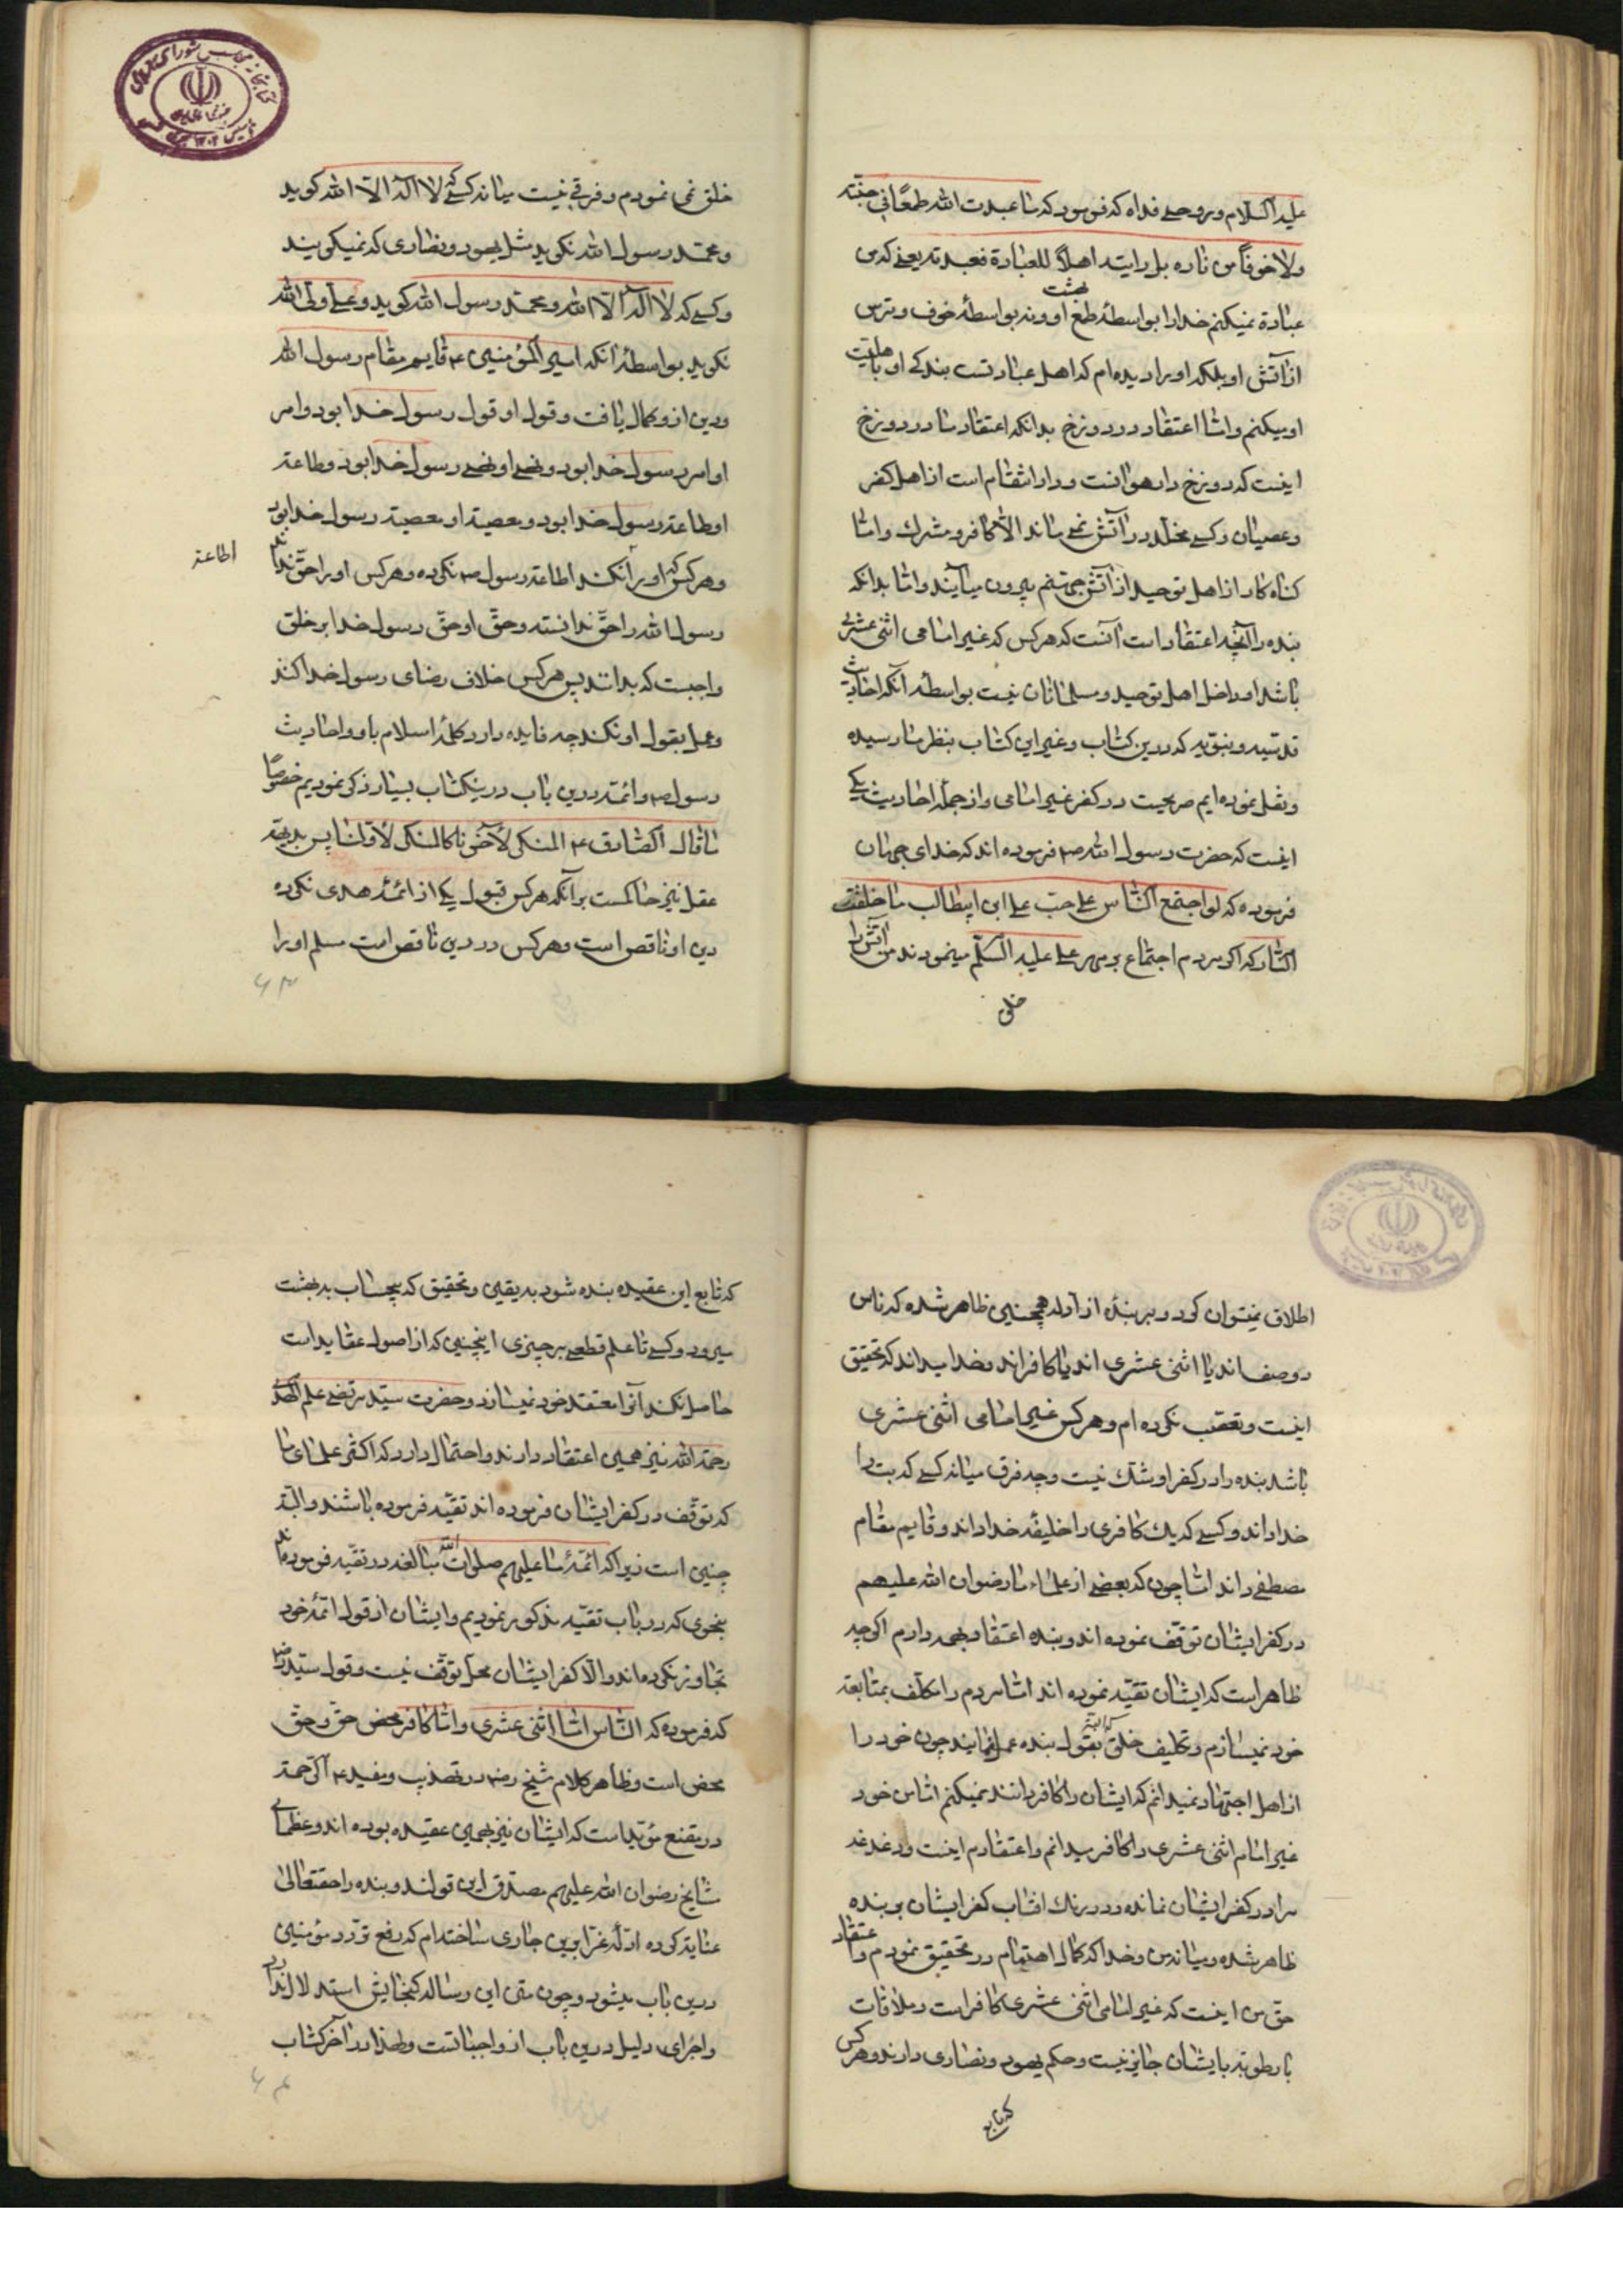 علیه السلام و روحی فداه که فرمود که ما عبدت الله طمعًا فی جنته
ولا خوفًا من ناره بل رایته اهلًا للعبادة فعبدته یعنی که من
عبادة نمیکنم خدا را بواسطهٔ طمع بهشت او و نه بواسطهٔ خوف و ترس
از آتش او بلکه او را دیده‌ام که اهل عبادتست بندکی او باهلیت
او میکنم و اما اعتقاد در دوزخ بدانکه اعتقاد ما در دوزخ
اینست که دوزخ دار هوانست و دار انتقام است از اهل کفر
و عصیان و کسی مخلد در آتش نمی ماند الا کافر و مشرک و اما
کناه کار از اهل توحید از آتش جهنم بیرون میآیند و اما بدانکه
بنده را آنچه اعتقاد است آنست که هر کس که غیر امامی اثنی عشری
باشد او داخل اهل توحید و مسلمانان نیست بواسطه آنکه احادیث
قدسیه و نبویه که درین کتاب و غیر این کتاب بنظر ما رسیده
و نقل نموده‌ایم صریحست در کفر غیر امامی و از جمله احادیث یکی
اینست که حضرت رسول الله ص فرموده اند که خدای جهان
فرموده که لو اجتمع الناس علی حب علی ابن ابیطالب ما خلقت
النار که اکر مردم اجتماع بر مهر علی علیه السلم مینمودند من آتش را
خلق
خلق نمی نمودم و فرقی نیست میانه کسی که لا اله الا الله کوید
و محمد رسول الله نکوید مثل یهود و نصاری که نمیکویند
و کسی که لا اله الا الله و محمد رسول الله کوید و علی ولی الله
نکوید بواسطهٔ آنکه امیر المؤمنین ع قایم مقام رسول الله
و دین ازو کمال یافت و قول او قول رسول خدا بود و امر
او امر رسول خدا بود و نهی او نهی رسول خدا بود و طاعة
او طاعة رسول خدا بود و معصیة او معصیة رسول خدا بود
و هر کس که او را نکند اطاعة رسول ص نکرده و هر کس او را حق نداند
اطاعة
رسول الله را حق ندانسته و حق او حق رسول خدا بر خلق
واجبست که بدانند پس هر کس خلاف رضای رسول خدا کند
و عمل بقول او نکند چه فایده دارد کلمهٔ اسلام با او و احادیث
رسول ص و ائمه درین باب درینکتاب بسیار ذکر نمودیم خصوصًا
ما قال الصادق ع المنکر لآخرنا کالمنکر لأولنا پس بدیهه
عقل نیز حاکمست بر آنکه هر کس قبول یکی از ائمهٔ هدی نکرده
دین او ناقص است و هر کس در دین ناقص است مسلم او را
۶۳
اطلاق نمیتوان کرد و بر بنده از ادله همچنین ظاهر شده که ناس
دو صنف اند یا اثنی عشری اند یا کافراند و خدا میداند که تحقیق
اینست و تعصب نکرده ام و هر کس غیر امامی اثنی عشری
باشد بنده را در کفر او شک نیست و چه فرق میانه کسی که بت را
خدا داند و کسی که یک کافری را خلیفهٔ خدا داند و قایم مقام
مصطفی داند اما چون که بعضی از علماء ما رضوان الله علیهم
در کفر ایشان توقف نموده اند و بنده اعتقاد بهمه دارم اکرچه
ظاهر است که ایشان تقیه نموده اند اما مردم را مکلف بمتابعة
خود نمیسازم و تکلیف خلق که البته بقول بنده عمل نمایند چون خود را
از اهل اجتهاد نمیدانم که ایشان را کافر دانند نمیکنم اما من خود
غیر امام اثنی عشری را کافر میدانم و اعتقادم اینست و دغدغه
مرا در کفر ایشان نمانده و در رنک افتاب کفر ایشان بر بنده
ظاهر شده و میانه من و خدا که کمال اهتمام در تحقیق نمودم و اعتقاد
حق من اینست که غیر امامی اثنی عشری کافر است و ملاقات
با رطوبة با ایشان جایز نیست و حکم یهود و نصاری دارند و هر کس
که تابع
که تابع این عقیده بنده شود به یقین و تحقیق که بیحساب به بهشت
میرود و کسی تا علم قطعی بر چیزی اینچنین که از اصول عقاید است
حاصل نکند آنرا معتقد خود نمیسازد و حضرت سید مرتضی علم الهدی
رحمة الله نیز همین اعتقاد دارند و احتمال دارد که اکثر علمای ما
که توقف در کفر ایشان فرموده اند تقیه فرموده باشند و البته
چنین است زیرا که ائمهٔ ما علیهم صلوات الله مبالغه در تقیه فرموده اند
بنحوی که در باب تقیه مذکور نمودیم و ایشان از قول ائمهٔ خود
تجاوز نکرده اند و الا کفر ایشان محل توقف نیست و قول سید رض
که فرموده که الناس اما اثنی عشری و اما کافر محض حق و حق
محض است و ظاهر کلام شیخ رض در تهذیب و مفید ع الرحمة
در مقنع مؤید است که ایشان نیز بهمین عقیده بوده اند و عظمای
مشایخ رضوان الله علیهم مصدق این قولند و بنده را حقتعالی
عنایة کرده ادلهٔ غرا برین جاری ساخته‌ام که رفع تردد مؤمنین
درین باب میشود و چون متن این رساله کنجایش استدلال ندارد
و اجرای دلیل درین باب از واجباتست و لهذا در آخر کتاب
۶۴